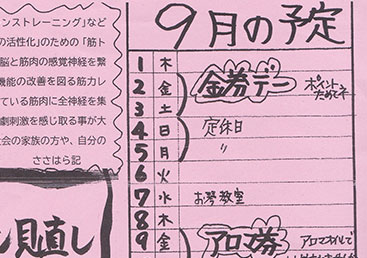 ンストレーニング」など
の活性化」のための「筋ト
脳と筋肉の感覚神経を繋
機能の改善を図る筋力レ
ている筋肉に全神経を集
劇刺激を感じ取る事が大
会の家族の方や、自分の
ささはら記
し見直し
9月の予定
1 木
2 金 金券デー ポイントためてネ
3 土
4 日 定休日
5 月 〃
6 火
7 水 お琴教室
8 木
9 金 アロマ券 アロマオイルで